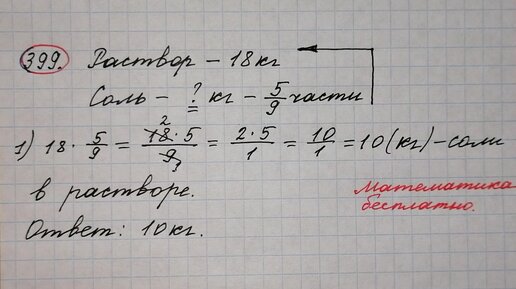 399. Раствор – 18 кг
Соль – ? кг – 5/9 части
1) 18 · 5/9 = 18 · 5/9 = 2 · 5/1 = 10/1 = 10 (кг) – соли
2
1
в растворе.
Ответ: 10 кг.
Математика
бесплатно.